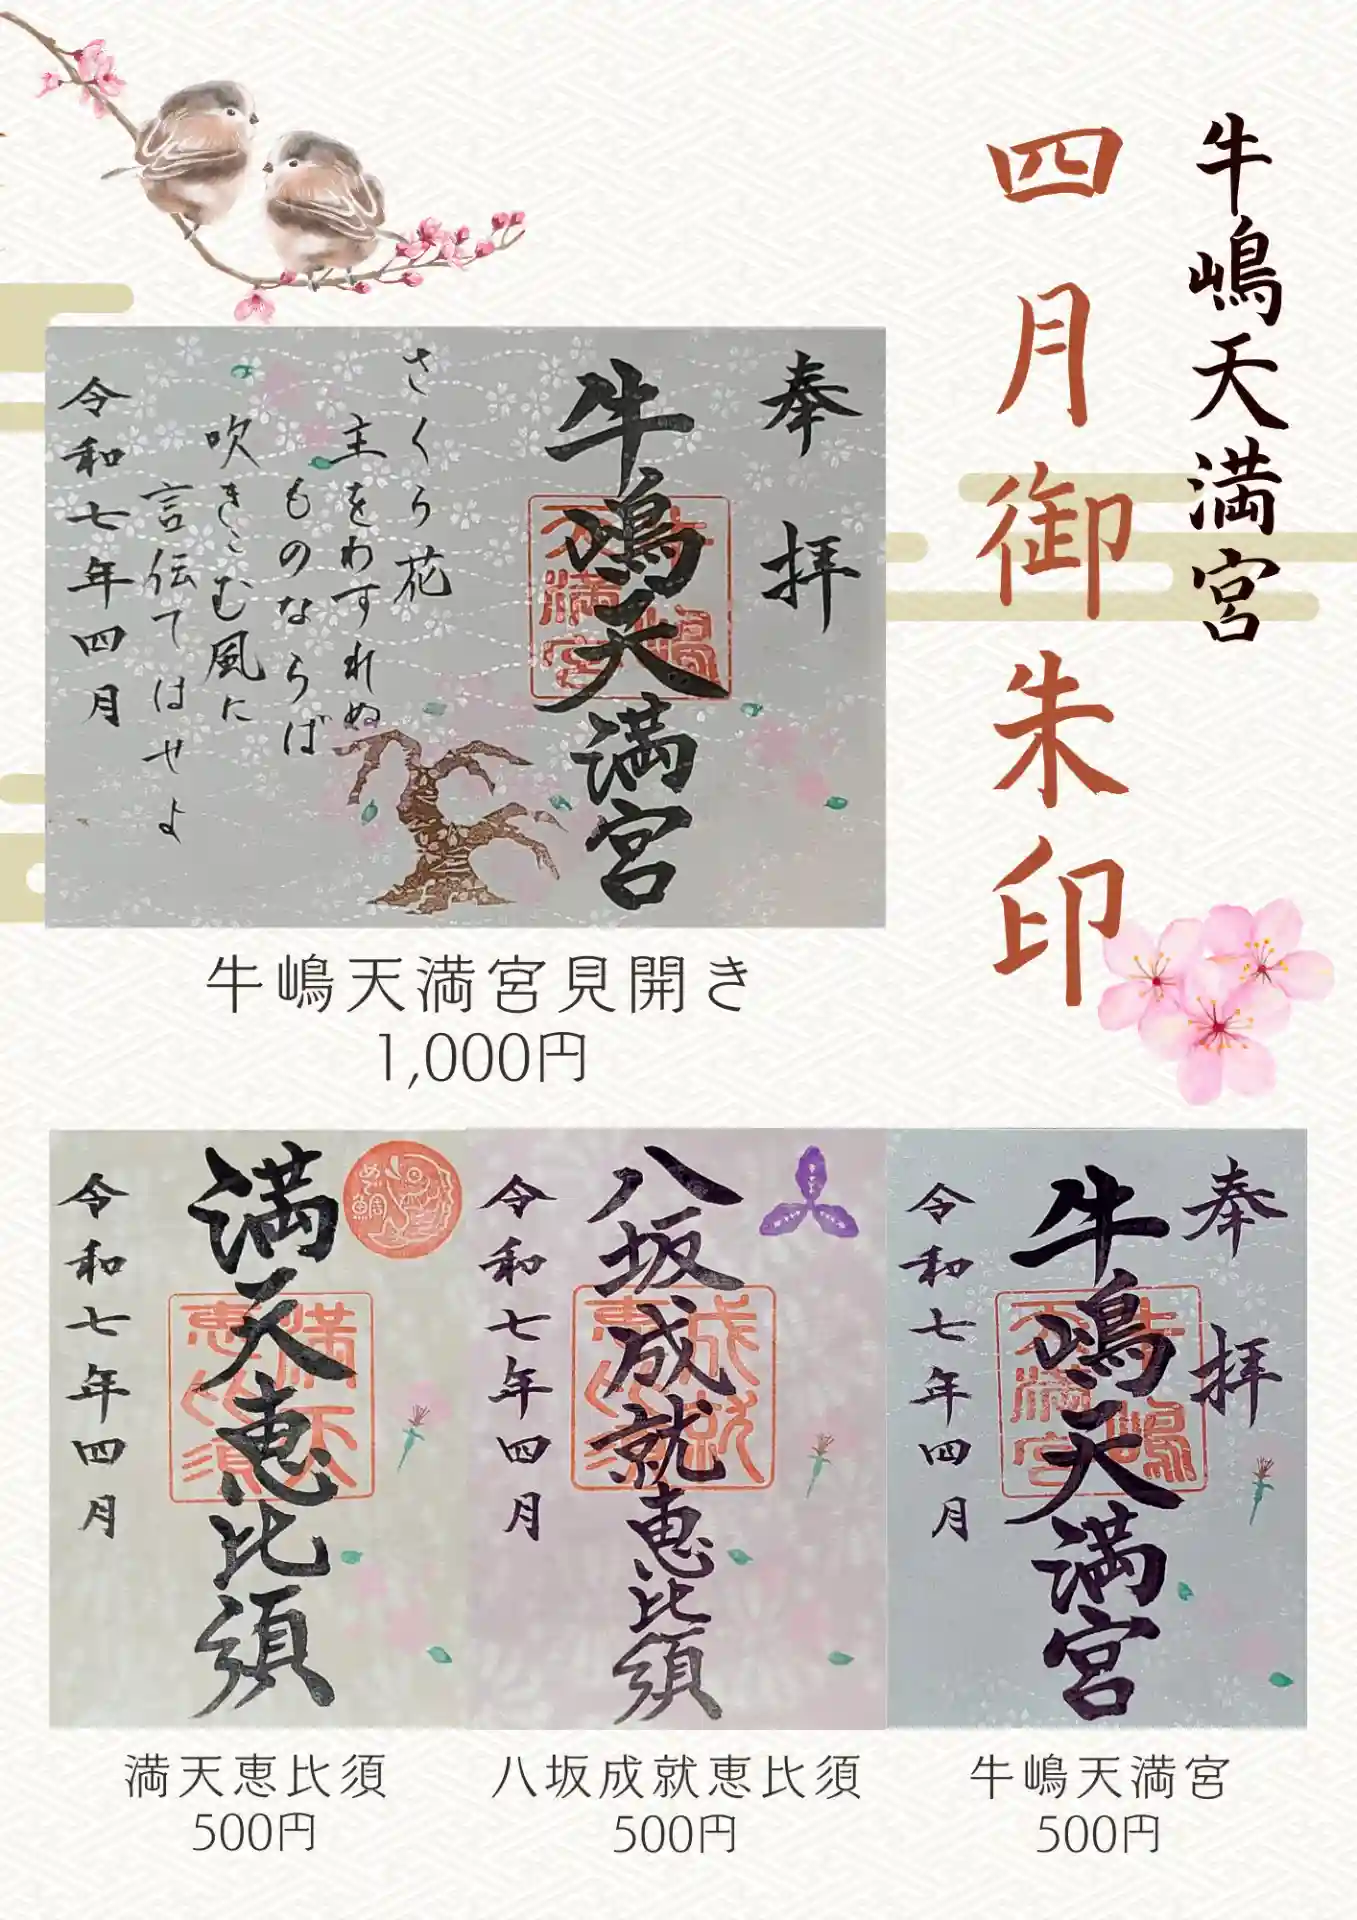 牛嶋天満宮
四月御朱印
奉拝
牛嶋天満宮
牛嶋
天満宮
さくら花
主をわすれぬ
ものならば
吹きこむ風に
言伝てはせよ
令和七年四月
牛嶋天満宮見開き
1,000円
めで鯛
満天恵比須
満天
恵比須
令和七年四月
満天恵比須
500円
八坂成就恵比須
成就
恵比須
令和七年四月
八坂成就恵比須
500円
奉拝
牛嶋天満宮
牛嶋
天満宮
令和七年四月
牛嶋天満宮
500円